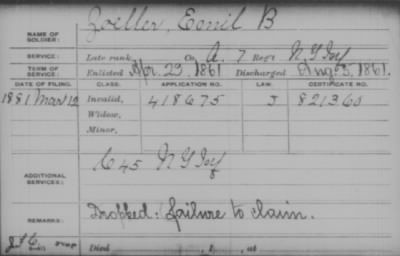 NAME OF SOLDIER: Zoeller, Emil B
SERVICE: Late rank, Co. A, 7 Reg't N Y Inf
TERM OF SERVICE: Enlisted Apr. 23, 1861 Discharged Aug 3, 1861.
DATE OF FILING. CLASS. APPLICATION NO. LAW. CERTIFICATE NO.
1881 Mar 12 Invalid, 418675 J 82136
Widow,
Minor,
ADDITIONAL SERVICES: C 45 N Y Inf
REMARKS: Dropped: failure to claim.
Died , 1 , at